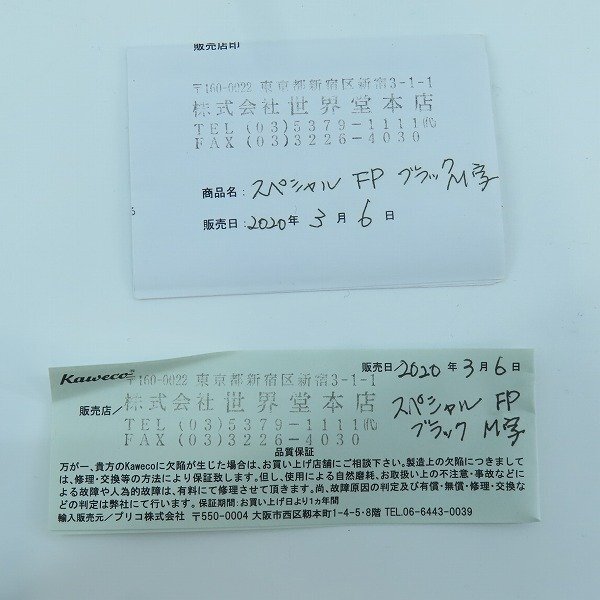 販売店印
〒160-0022 東京都新宿区新宿3-1-1
株式会社世界堂本店
TEL (03)5379-1111㈹
FAX (03)3226-4030
商品名：スペシャル FP ブラックM字
販売日：2020年 3月 6日
Kaweco
販売日 2020年 3月 6日
〒160-0022 東京都新宿区新宿3-1-1
販売店／株式会社世界堂本店
スペシャル FP
TEL (03)5379-1111㈹
ブラック M字
FAX (03)3226-4030
品質保証
万が一、貴方のKawecoに欠陥が生じた場合は、お買い上げ店舗にご相談下さい。製造上の欠陥につきまして
は、修理・交換等の方法により保証致します。但し、使用による自然磨耗、お取扱い上の不注意・事故などに
よる故障や人為的故障は、有料にて修理させて頂きます。尚、故障原因の判定及び有償・無償・修理・交換な
どの判定は弊社にて行います。保証期間：お買い上げ日より1ヵ年間
輸入販売元／プリコ株式会社 〒550-0004 大阪市西区靱本町1-4-5・8階 TEL.06-6443-0039